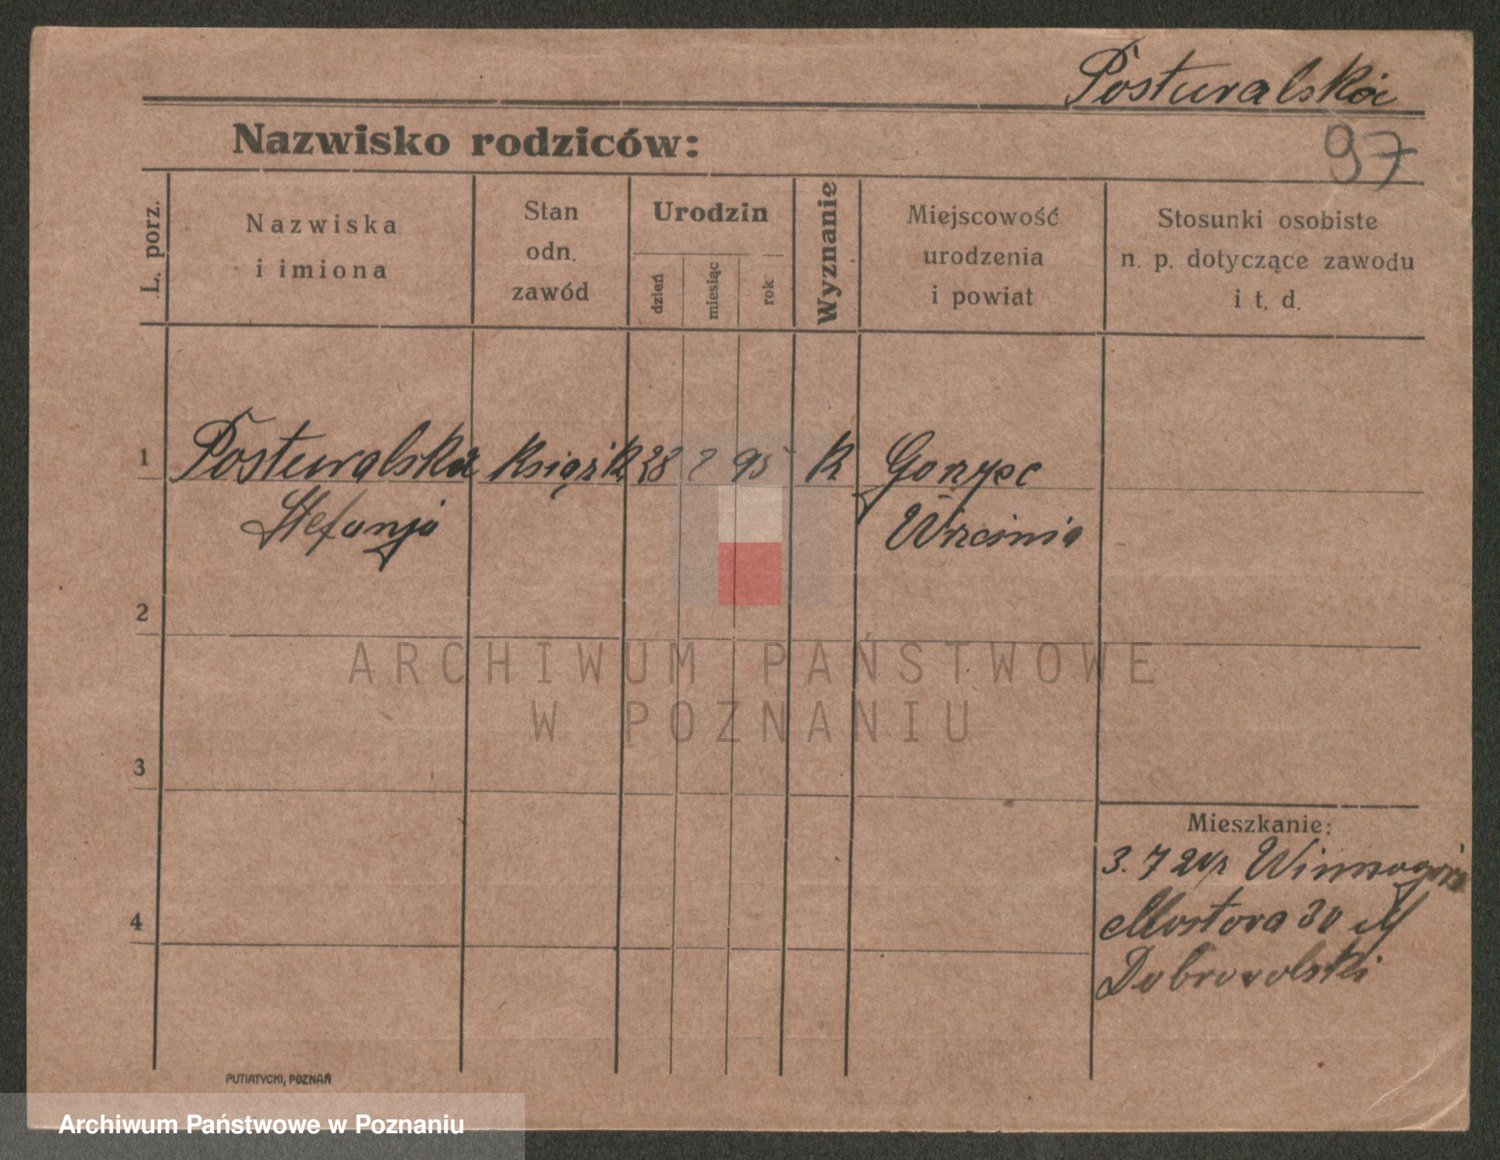 Postuwalska
97
Nazwisko rodziców:
L. porz.
Nazwiska
i imiona
Stan
odn.
zawód
Urodzin
dzień
miesiąc
rok
Wyznanie
Miejscowość
urodzenia
i powiat
Stosunki osobiste
n. p. dotyczące zawodu
i t. d.
1
Postuwalska Książk 28 2 95 k
Stefanja
Września
2
3
4
Mieszkanie:
3. 7 24
Mostowa 30
Dobrowolski
ARCHIWUM PAŃSTWOWE
W POZNANIU
PUTIATYCKI, POZNAŃ
Archiwum Państwowe w Poznaniu